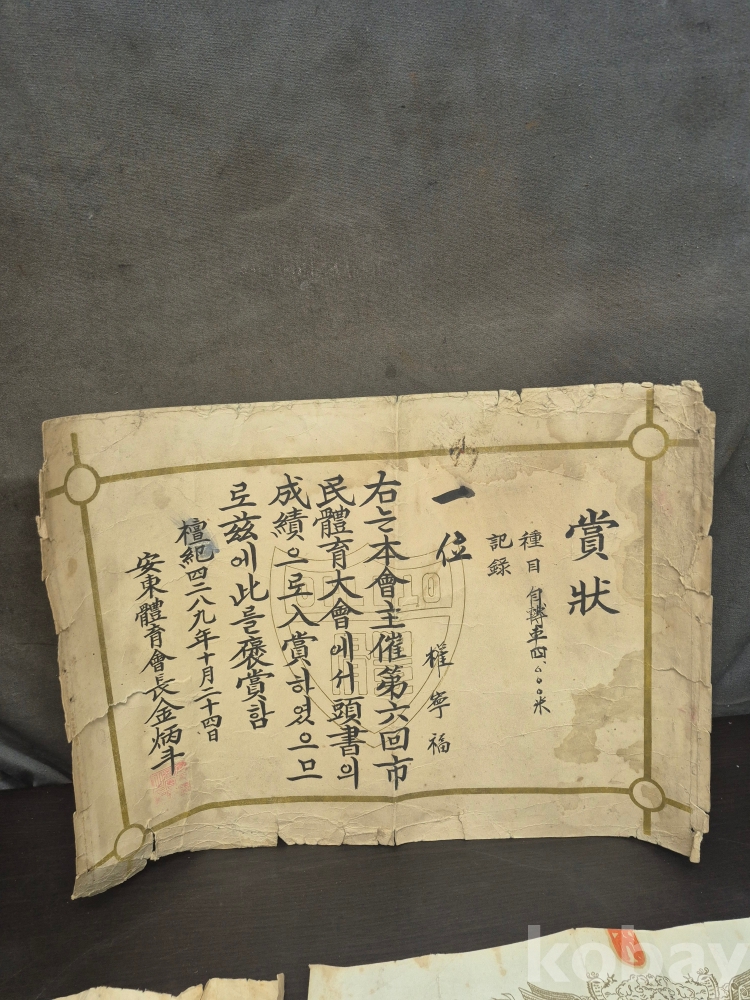 賞狀
種目 自轉車 四、〇〇〇米
記録
一位
權寧福
右는本會主催第六回市
民體育大會에서頭書의
成績으로入賞하였으므
로玆에此를褒賞함
檀紀四二八九年十月二十四日
安東體育會長金炳斗
kobay